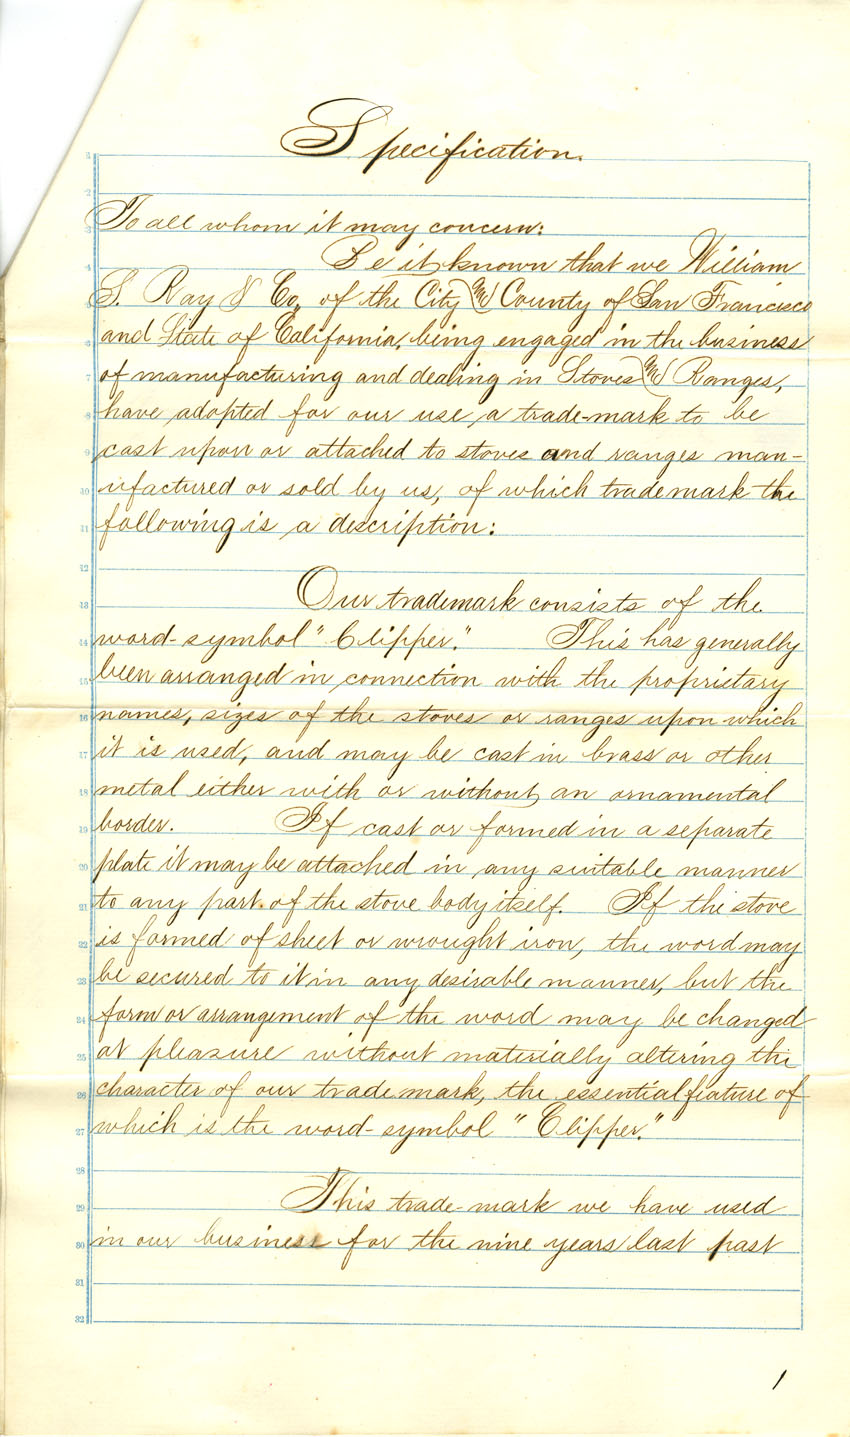 Specification.
To all whom it may concern:
Be it known that we William
S. Ray & Co, of the City and County of San Francisco
and State of California, being engaged in the business
of manufacturing and dealing in Stoves and Ranges,
have adopted for our use a trade-mark to be
cast upon or attached to stoves and ranges man-
ufactured or sold by us, of which trademark the
following is a description:
Our trademark consists of the
word-symbol "Clipper." This has generally
been arranged in connection with the proprietary
names, sizes of the stoves or ranges upon which
it is used, and may be cast in brass or other
metal either with or without an ornamental
border. If cast or formed in a separate
plate it may be attached in any suitable manner
to any part of the stove body itself. If the stove
is formed of sheet or wrought iron, the word may
be secured to it in any desirable manner, but the
form or arrangement of the word may be changed
at pleasure without materially altering the
character of our trade mark, the essential feature of
which is the word-symbol "Clipper."
This trade-mark we have used
in our business for the nine years last past
1